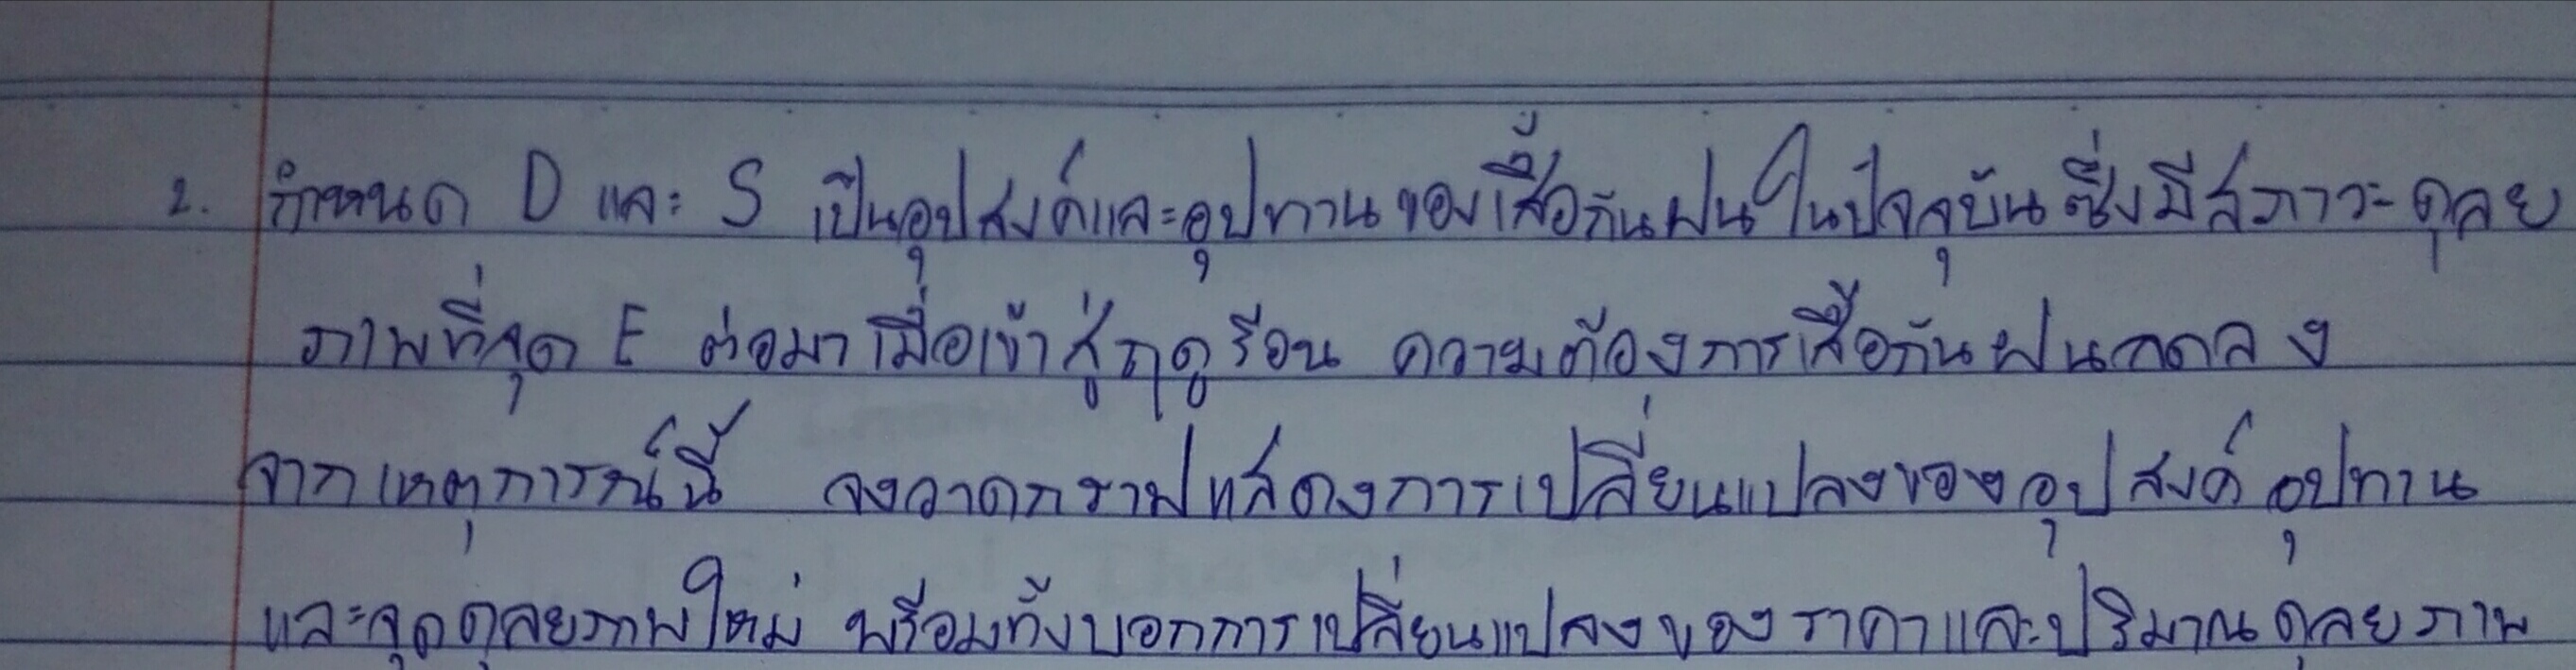 2. กำหนด D และ S เป็นอุปสงค์และอุปทานของเสื้อกันฝนในปัจจุบันซึ่งมีสภาวะดุลย
ภาพที่จุด E ต่อมาเมื่อเข้าสู่ฤดูร้อน ความต้องการเสื้อกันฝนลดลง
จากเหตุการณ์นี้ จงวาดกราฟแสดงการเปลี่ยนแปลงของอุปสงค์ อุปทาน
และจุดดุลยภาพใหม่ พร้อมทั้งบอกการเปลี่ยนแปลงของราคาและปริมาณดุลยภาพ